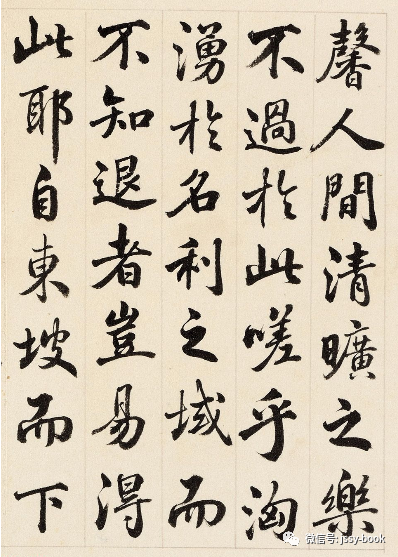 馨人間清曠之樂
不過於此嗟乎洶
湧於名利之域而
不知退者豈易得
此耶自東坡而下
微信号: jssy-book